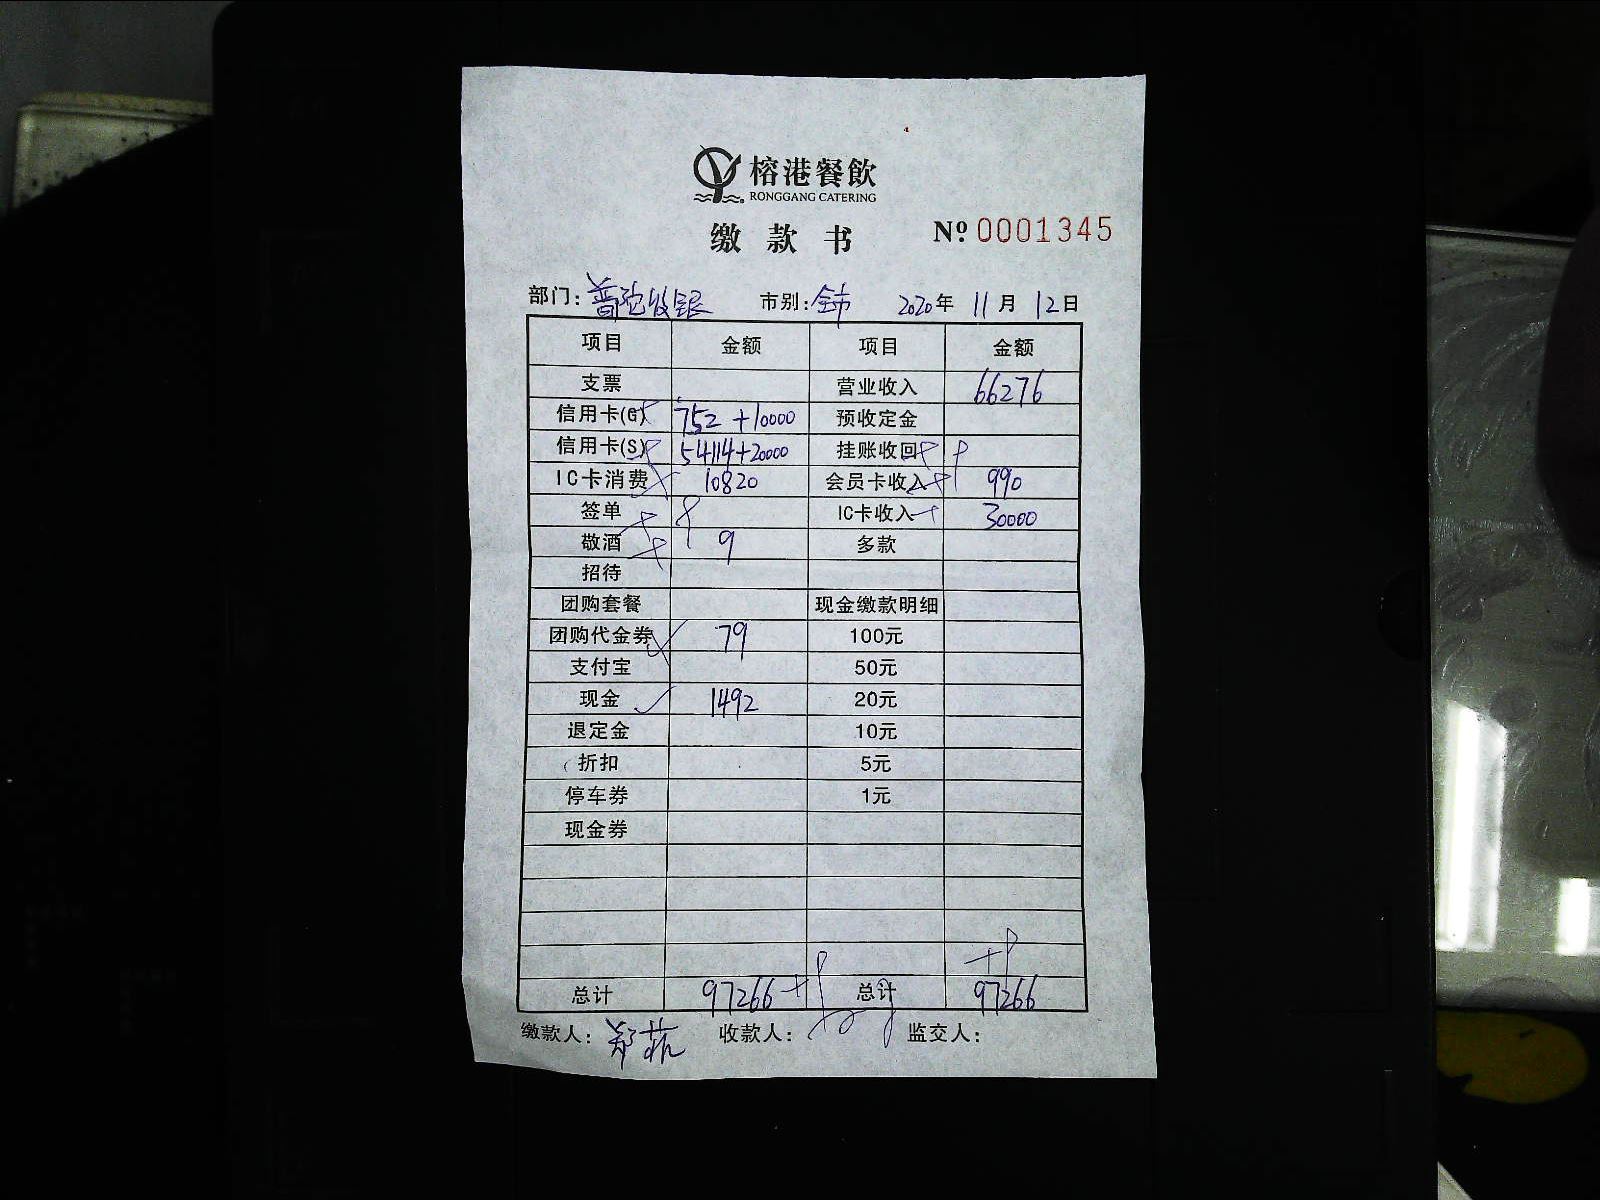 榕港餐飲
RONGGANG CATERING
缴款书 Nº 0001345
部门: 普陀收银 市别: 全市 2020年 11月 12日
项目 金额 项目 金额
支票 营业收入 66276
信用卡(G) 752+10000 预收定金
信用卡(S) 54114+20000 挂账收回
IC卡消费 10820 会员卡收入 990
签单 IC卡收入 30000
敬酒 9 多款
招待
团购套餐 现金缴款明细
团购代金券 79 100元
支付宝 50元
现金 1492 20元
退定金 10元
折扣 5元
停车券 1元
现金券
总计 97266 总计 97266
缴款人: 收款人: 监交人: